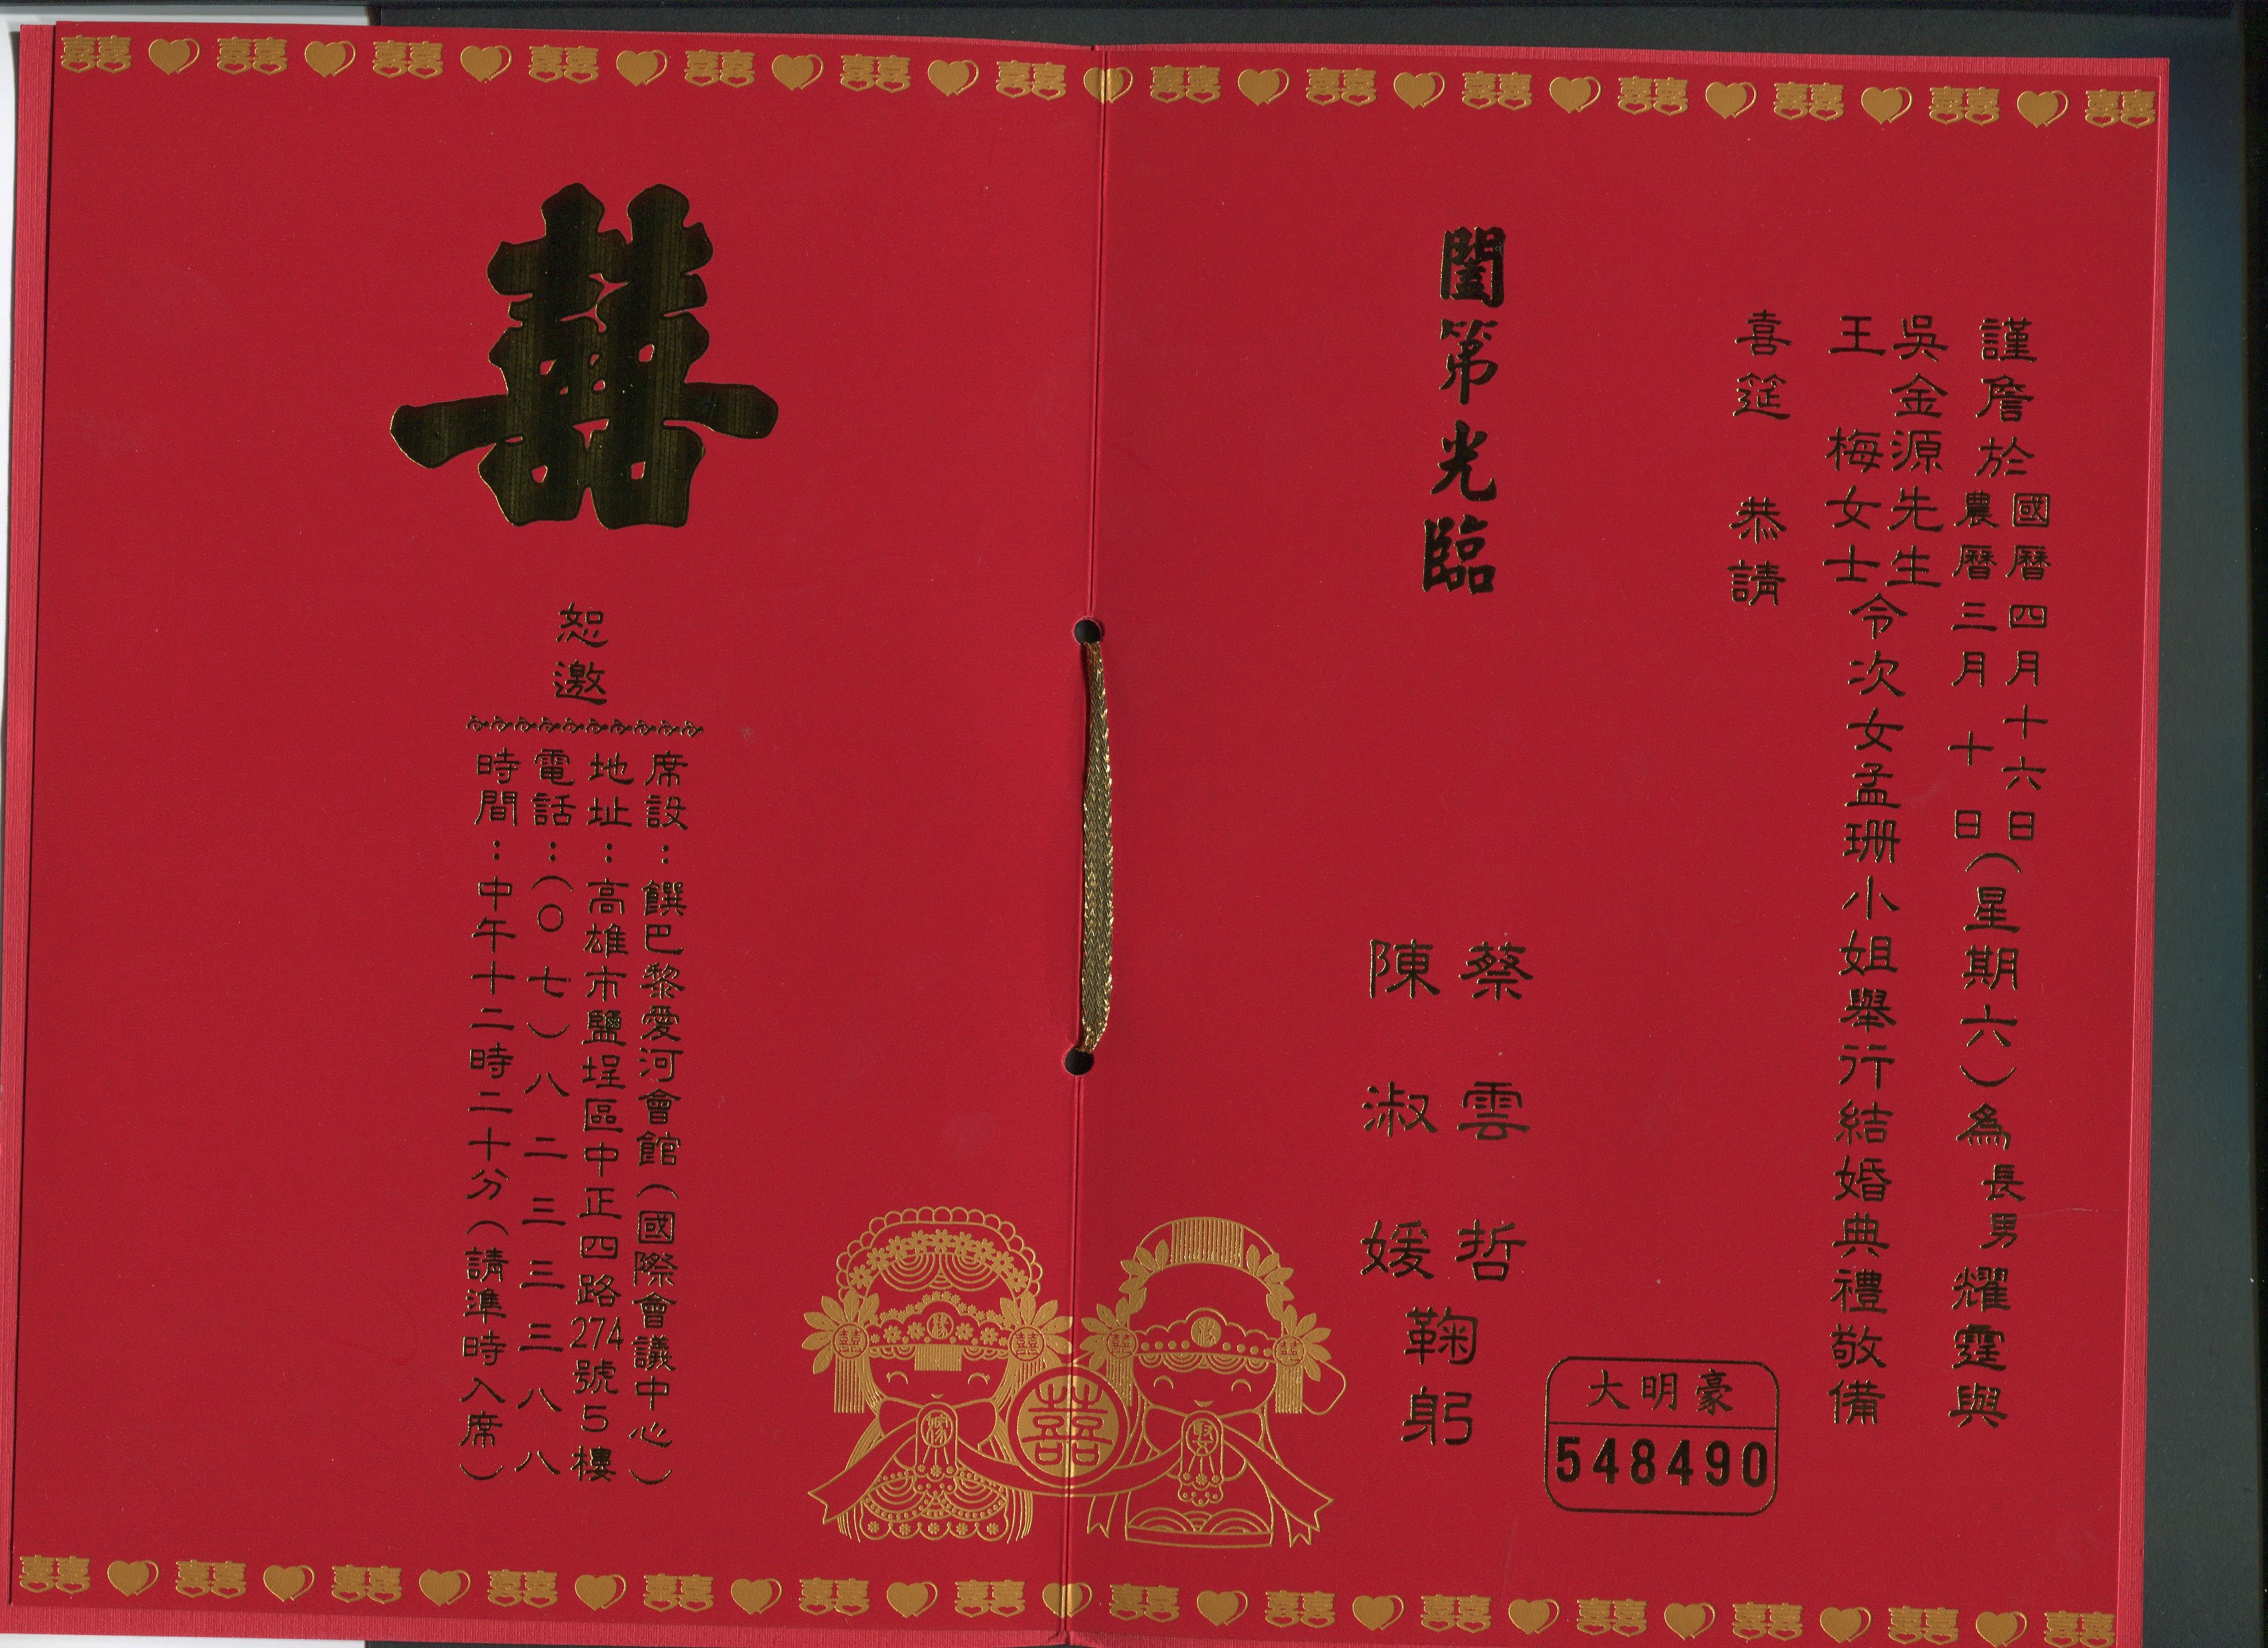 謹詹於
國曆四月十六日
農曆三月十日
(星期六)為
長男
耀霆與
吳金源先生
王梅女士
令次女孟珊小姐舉行結婚典禮敬備
喜筵 恭請
闔第光臨
蔡雲哲
陳淑媛
鞠躬
大明豪
548490
囍
恕邀
席設:饌巴黎愛河會館(國際會議中心)
地址:高雄市鹽埕區中正四路274號5樓
電話:(〇七)八二三三三八八
時間:中午十二時二十分(請準時入席)
囍
嫁
娶